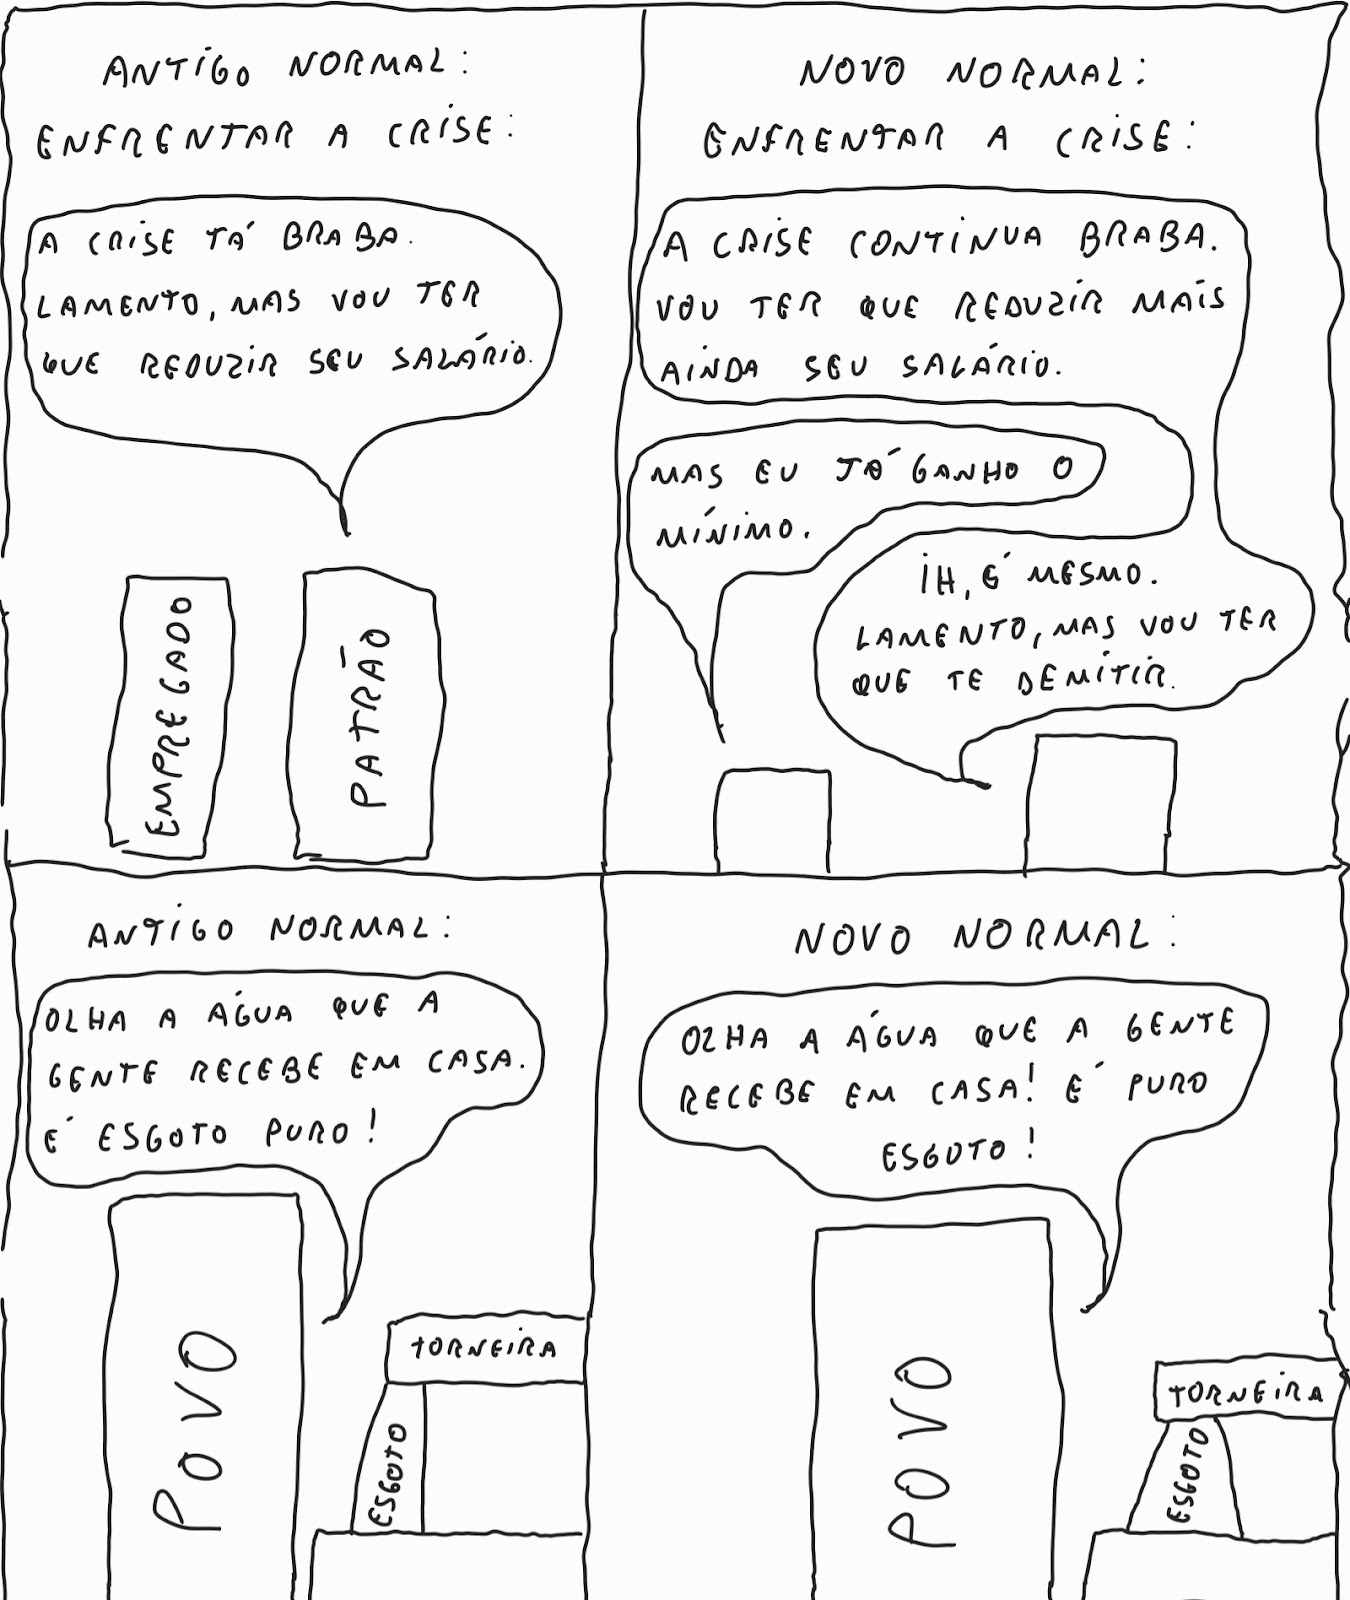 ANTIGO NORMAL:
ENFRENTAR A CRISE:
A CRISE TÁ BRABA.
LAMENTO, MAS VOU TER
QUE REDUZIR SEU SALÁRIO.
EMPREGADO
PATRÃO
NOVO NORMAL:
ENFRENTAR A CRISE:
A CRISE CONTINUA BRABA.
VOU TER QUE REDUZIR MAIS
AINDA SEU SALÁRIO.
MAS EU JÁ GANHO O
MÍNIMO.
IH, É MESMO.
LAMENTO, MAS VOU TER
QUE TE DEMITIR.
ANTIGO NORMAL:
OLHA A ÁGUA QUE A
GENTE RECEBE EM CASA.
É ESGOTO PURO!
POVO
TORNEIRA
ESGOTO
NOVO NORMAL:
OLHA A ÁGUA QUE A GENTE
RECEBE EM CASA! É PURO
ESGOTO!
POVO
TORNEIRA
ESGOTO